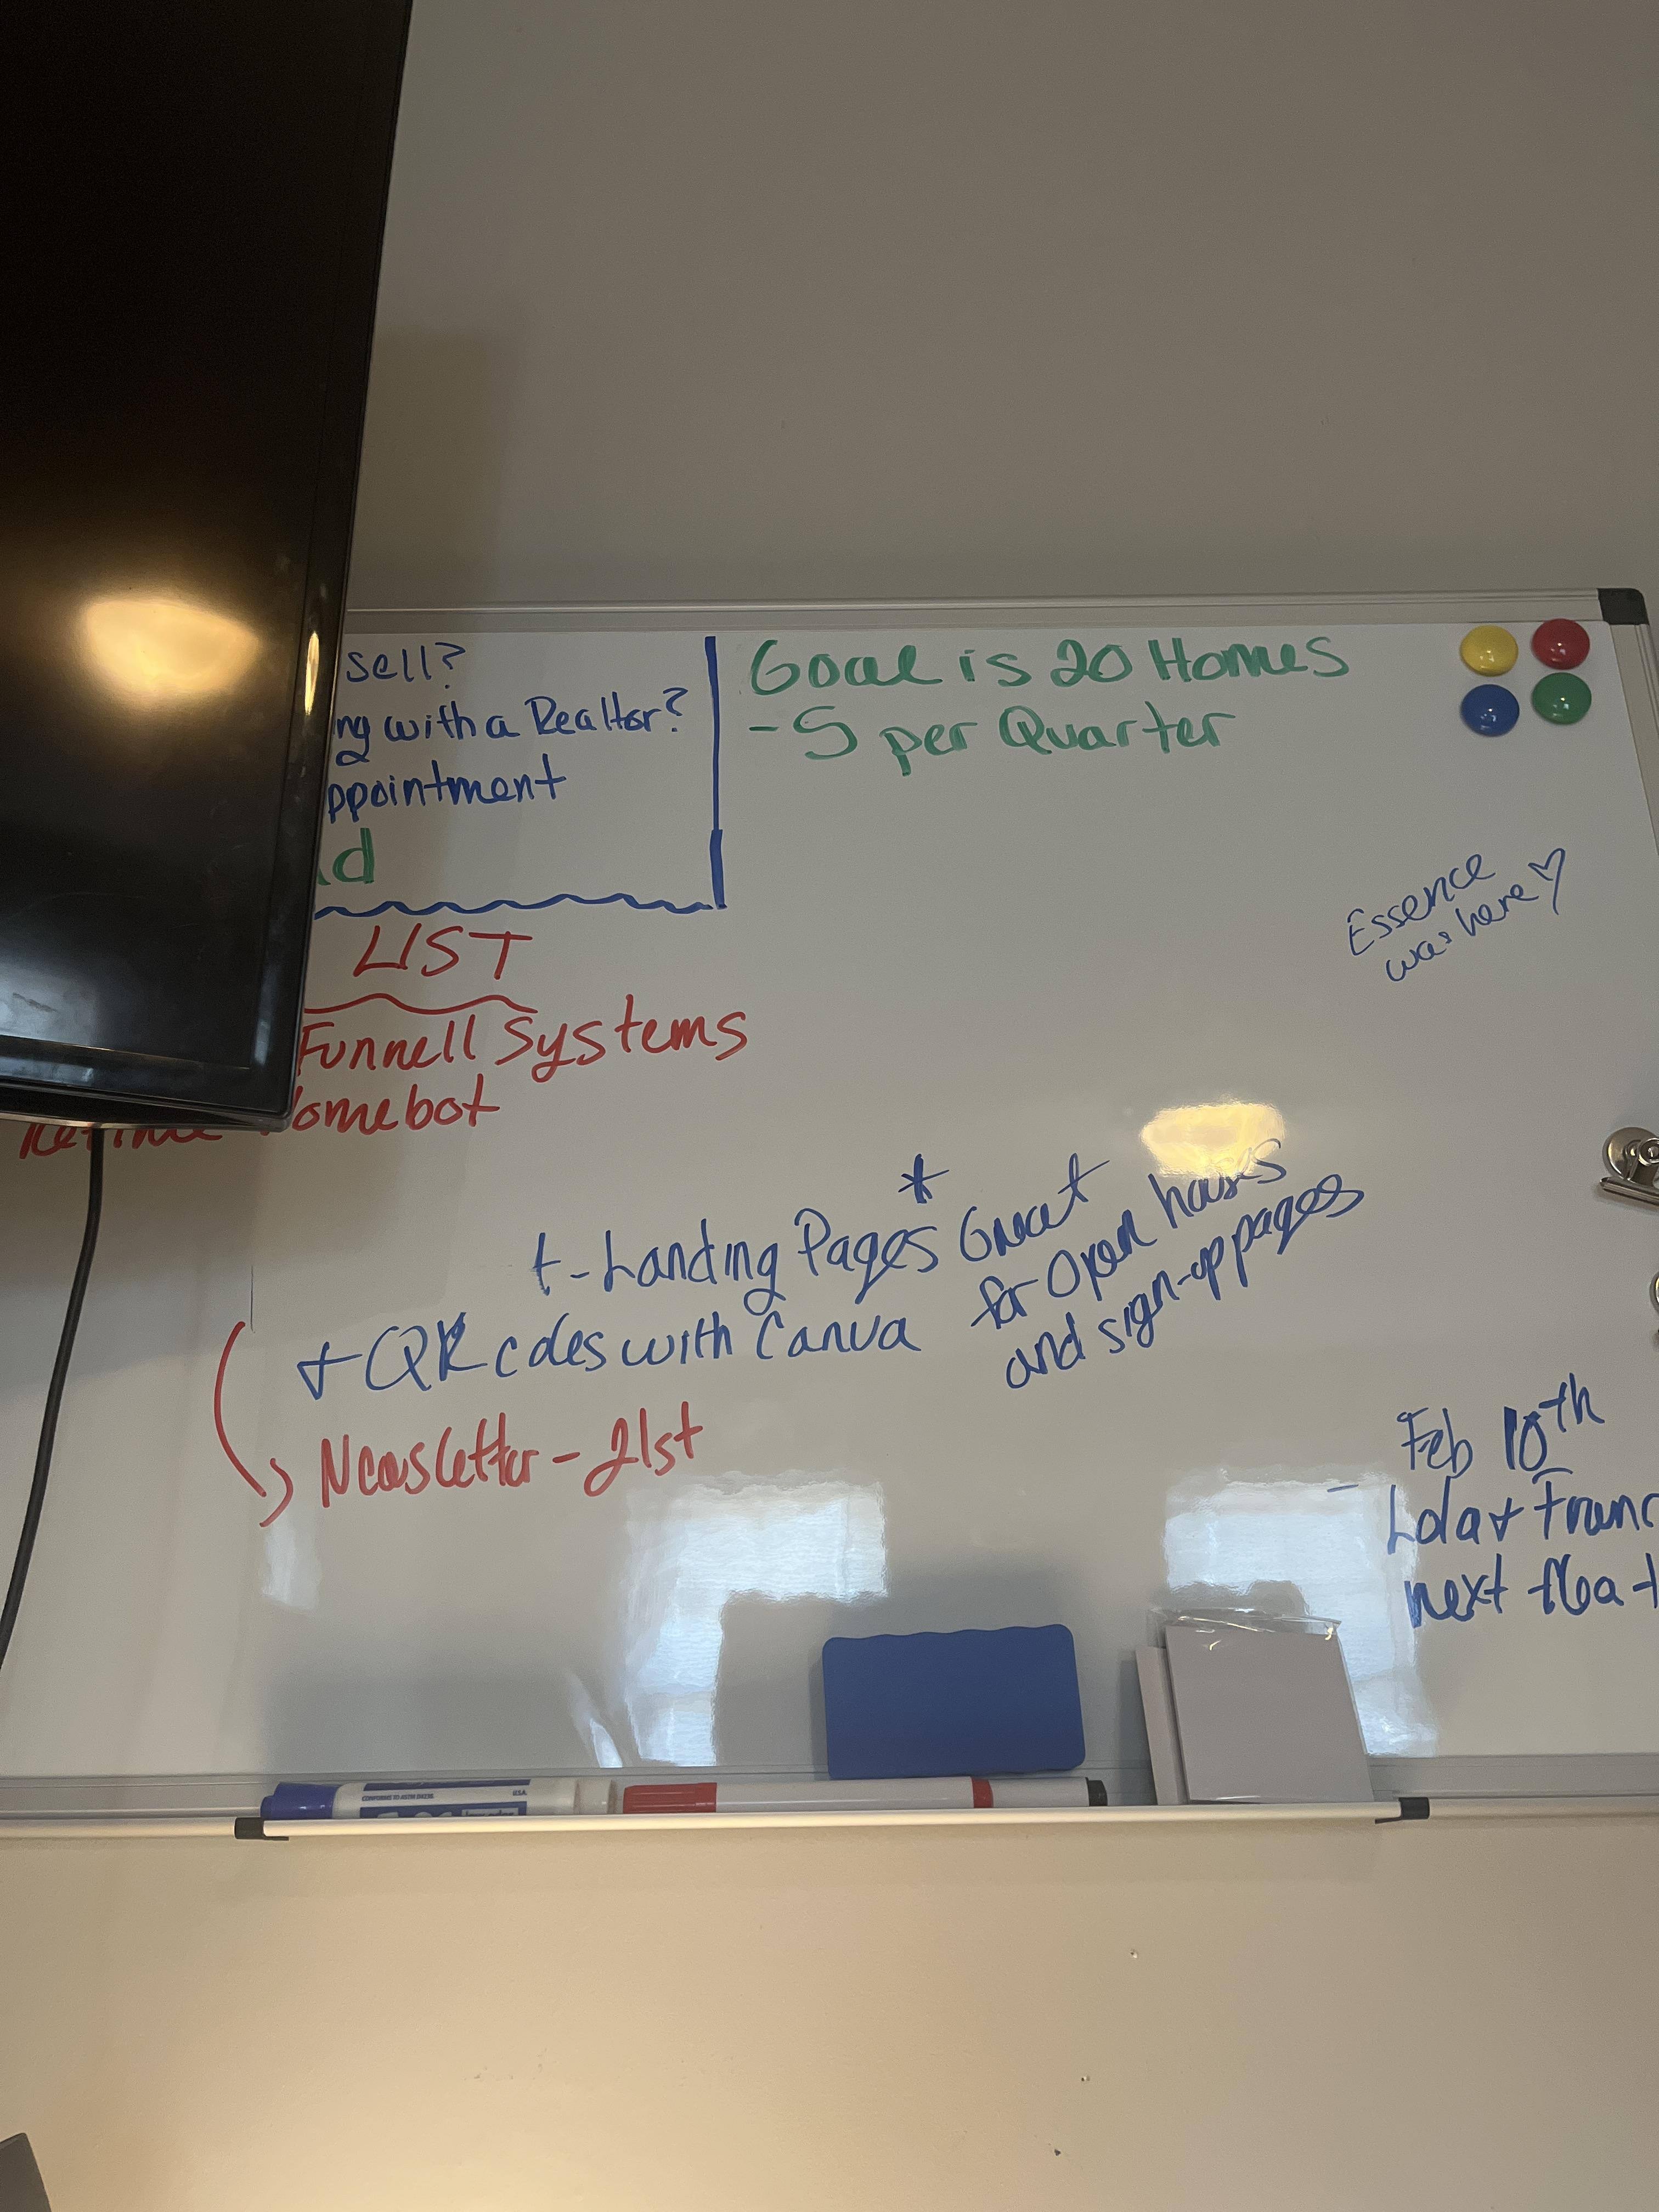 sell?
ng with a Realtor?
ppointment
d
Goal is 20 Homes
- 5 per Quarter
Essence
was here ♡
LIST
Funnell Systems
omebot
t - Landing Pages * Great
for Open houses
and sign-up pages
+ QR cdes with Canva
Newsletter - 21st
Feb 10th
- Lola + Franc
next floa
USA